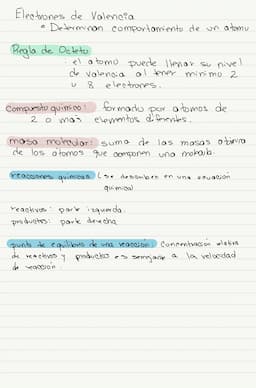 Electrones de Valencia
* Determinan comportamiento de un atomo
Regla de Octeto
: el atomo puede llenar su nivel
de valencia al tener minimo 2
u 8 electrones.
Compuesto quimico: formado por atomos de
2 o mas elementos diferentes.
masa molecular: suma de las masas
de los atomos que componen una molecula.
reacciones quimicas (se describen en una ecuación
quimica)
reactivos: parte izquierda.
productos: parte derecha
punto de equilibrio de una reacción: Concentración relativa
de reactivos y productos es semejante a la velocidad
de reacción.